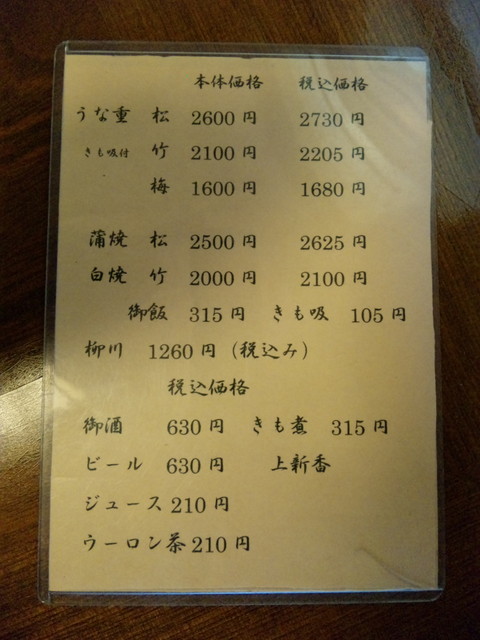 本体価格 税込価格
うな重 松 2600円 2730円
きも吸付 竹 2100円 2205円
梅 1600円 1680円
蒲焼 松 2500円 2625円
白焼 竹 2000円 2100円
御飯 315円 きも吸 105円
柳川 1260円（税込み）
税込価格
御酒 630円 きも煮 315円
ビール 630円 上新香
ジュース 210円
ウーロン茶 210円